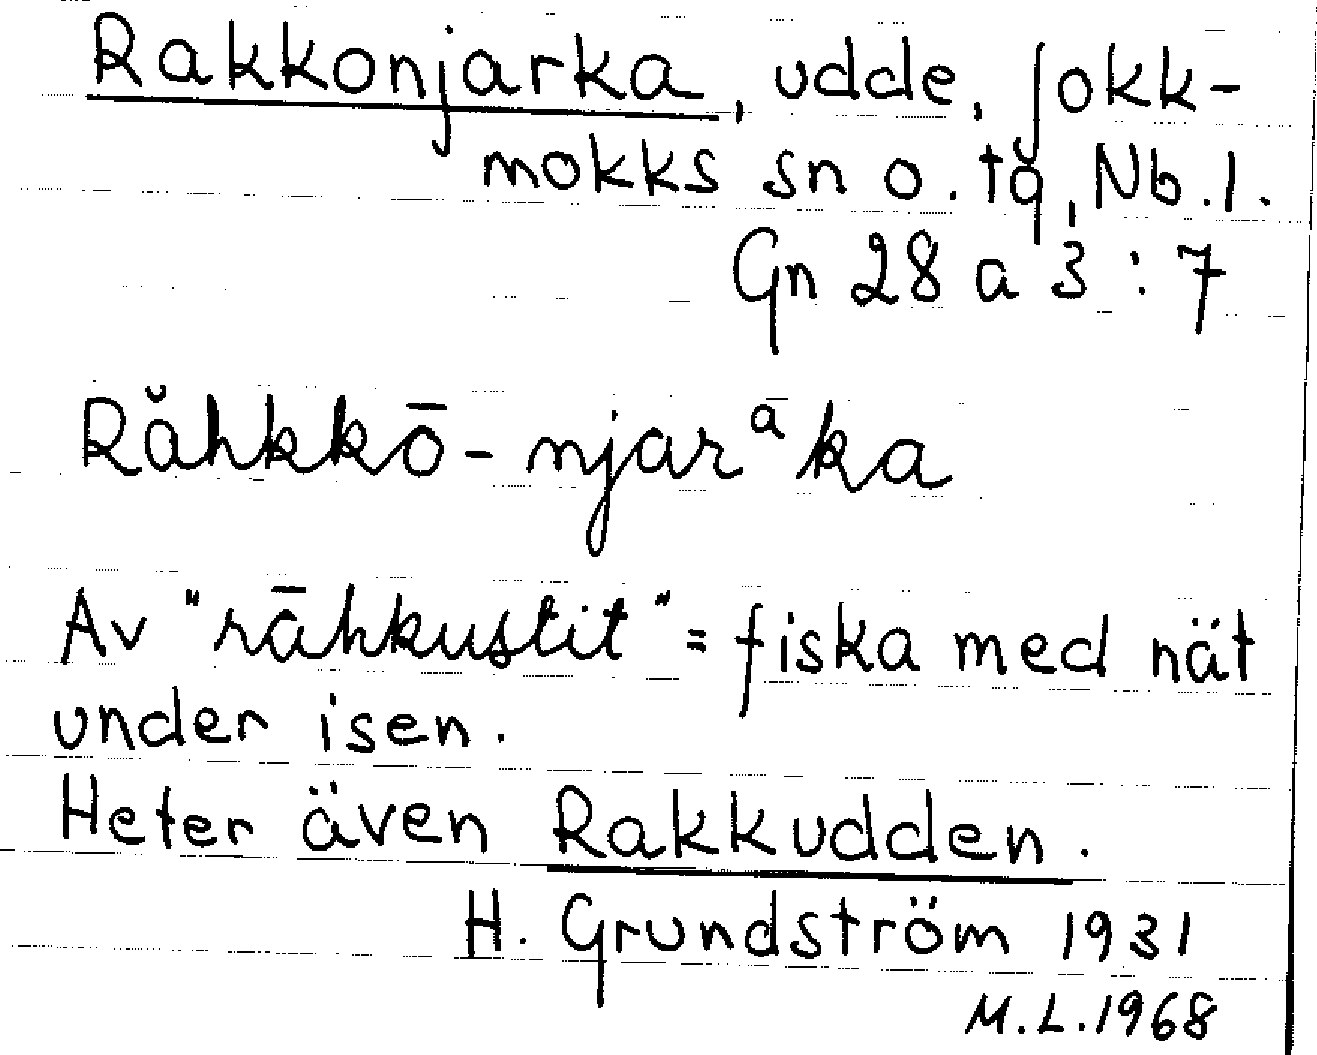 Rakkonjarka, udde, Jokk-
mokks sn o. tg, Nb. l.
Gn 28 a 3 : 7
Răhkkō-njarᵃka
Av "rāhkustit" = fiska med nät
under isen.
Heter även Rakkudden.
H. Grundström 1931
M.L. 1968